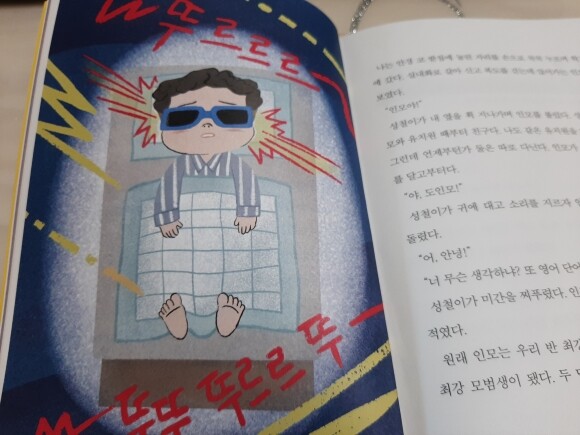 뚜르르르
뚜뚜 뚜르르 뚜
나는 안경 코 받침에 눌린 자리를 손으로
에 갔다. 실내화로 갈아 신고 복도를
보였다.
"인모야!"
성철이가 내 옆을 휙 지나가며 인모를 불렀다.
모와 유치원 때부터 친구다. 나도 같은 유치원을
그런데 언제부턴가 둘은 따로 다닌다. 인모가
를 달고부터다.
"야, 도인모!"
성철이가 귀에 대고 소리를 지르자
돌렸다.
"어, 안녕!"
"너 무슨 생각하냐? 또 영어 단어
성철이가 미간을 찌푸렸다.
적였다.
원래 인모는 우리 반 최강
최강 모범생이 됐다. 두